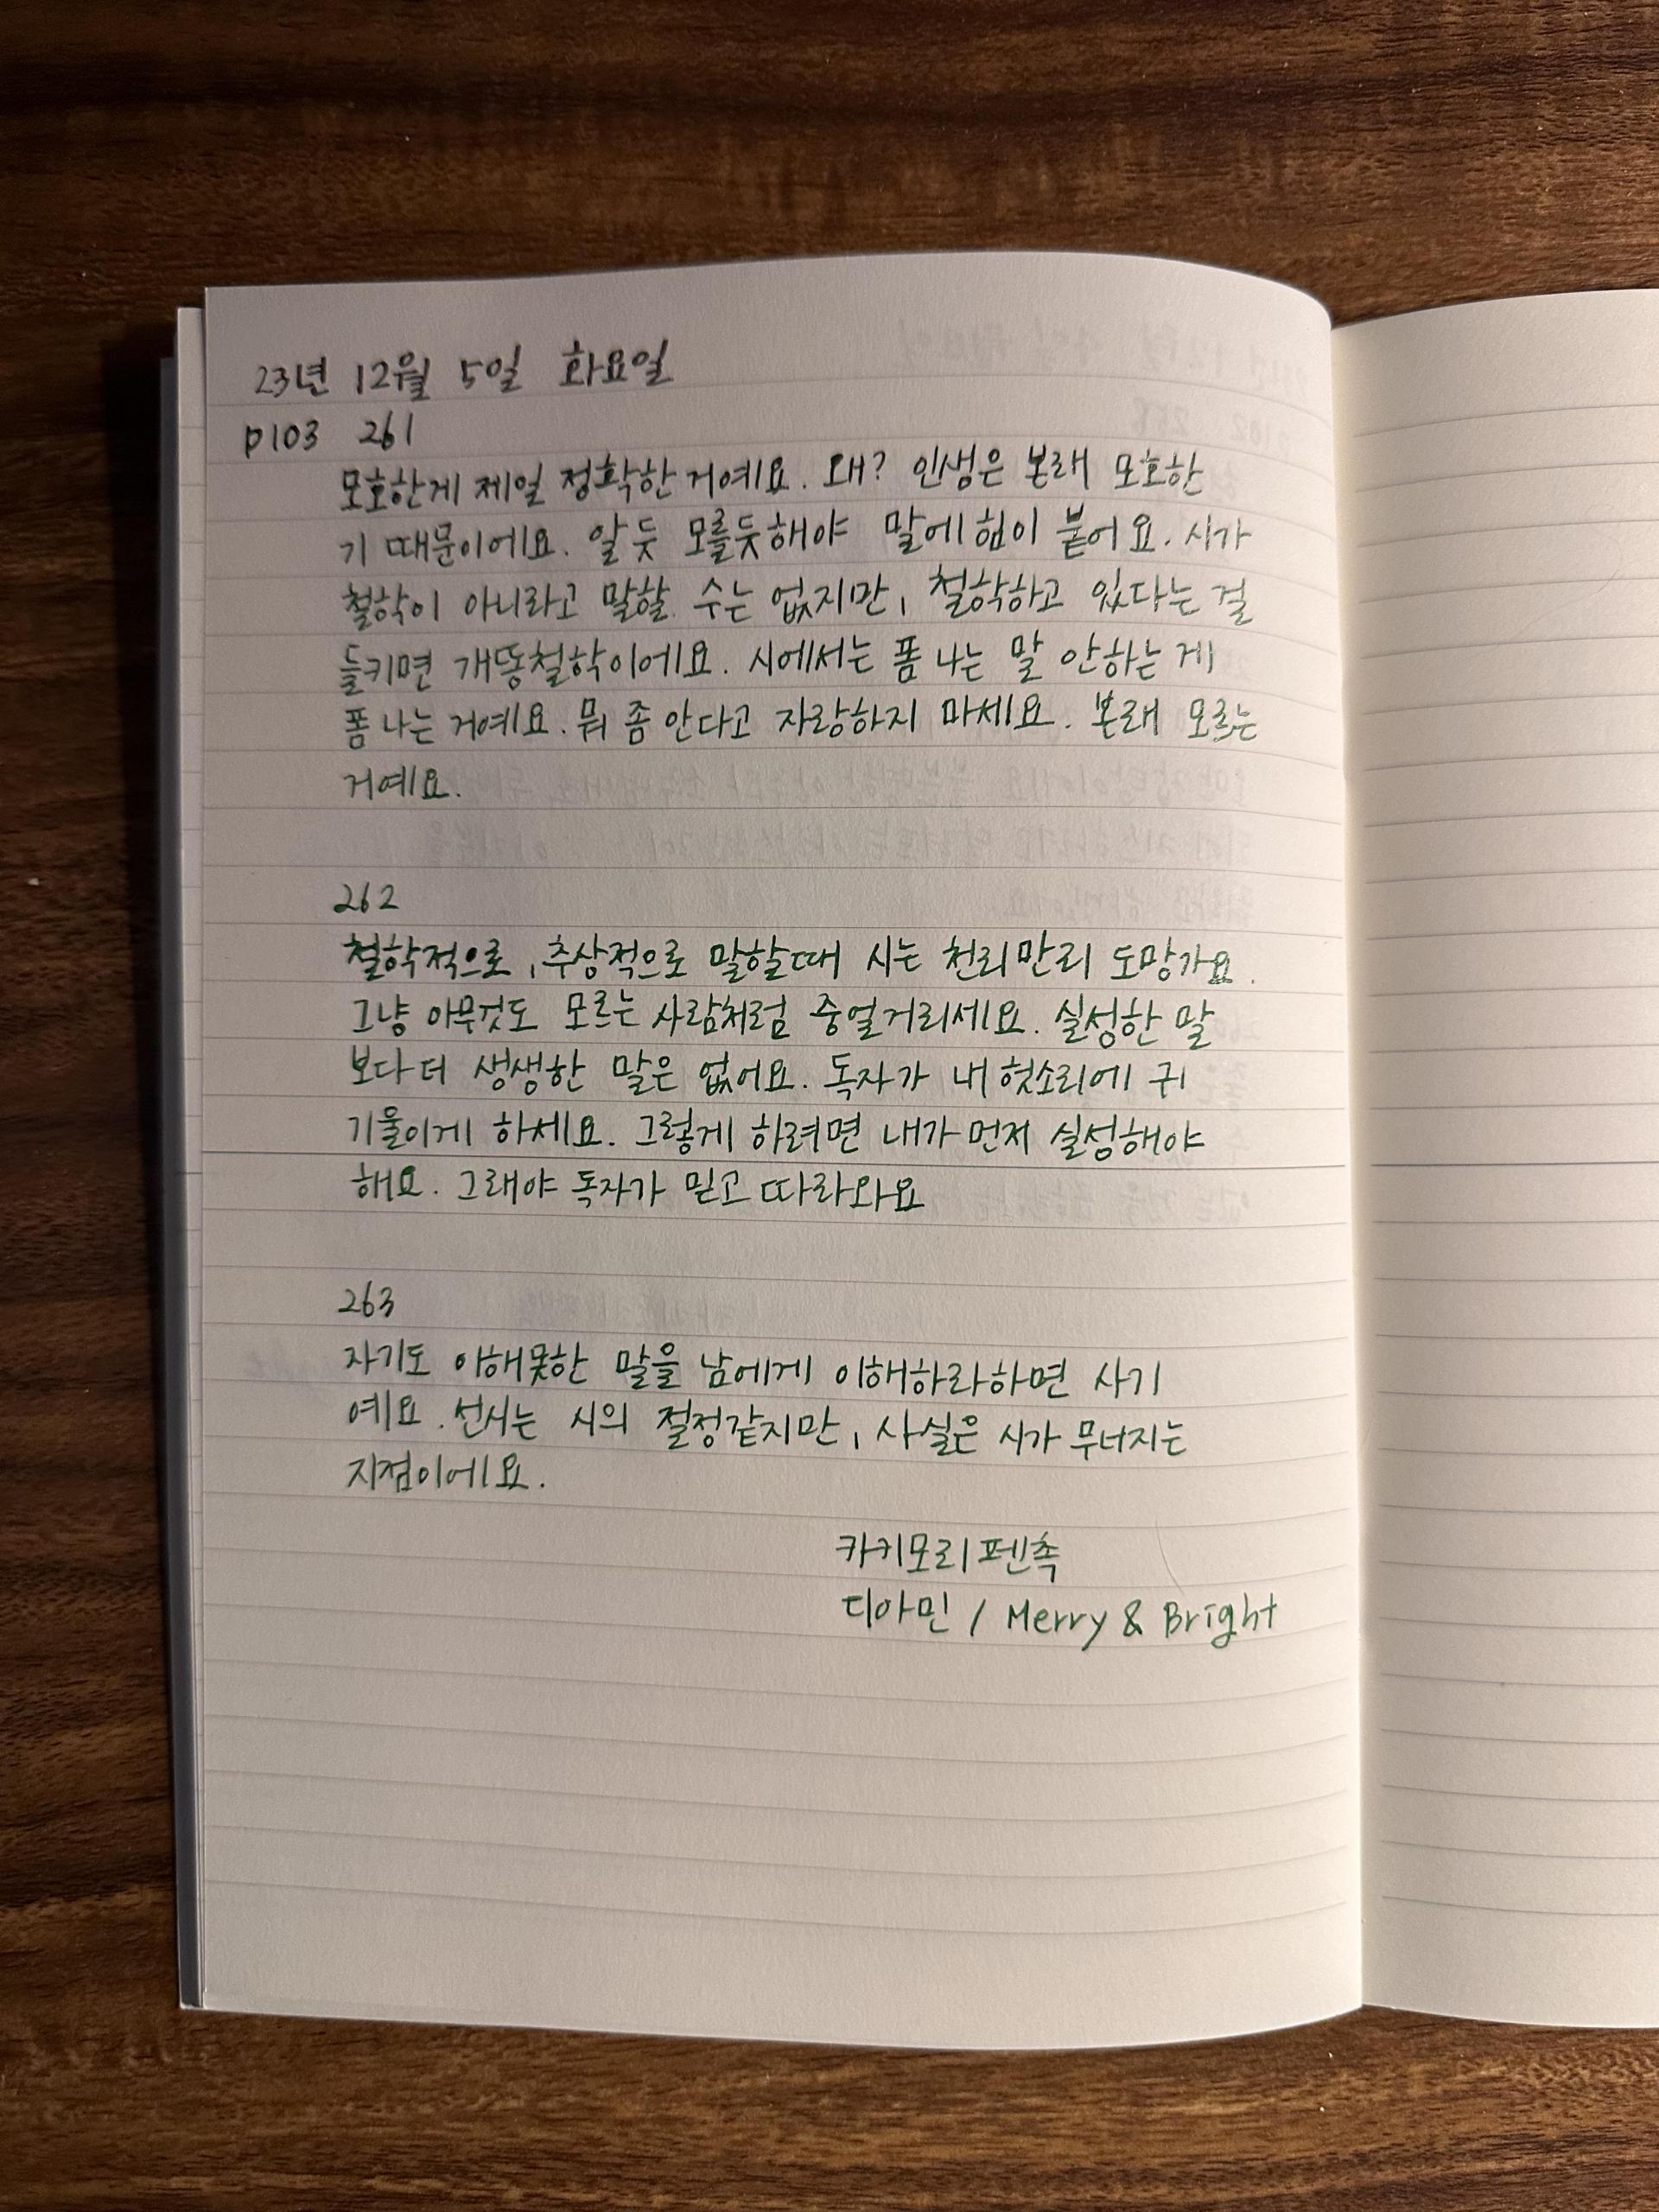 23년 12월 5일 화요일
p103 261
모호한게 제일 정확한 거예요. 왜? 인생은 본래 모호한
기 때문이에요. 알 듯 모를듯해야 말에 힘이 붙어요. 시가
철학이 아니라고 말할 수는 없지만, 철학하고 있다는 걸
들키면 개똥철학이에요. 시에서는 폼 나는 말 안하는 게
폼 나는 거예요. 뭐 좀 안다고 자랑하지 마세요. 본래 모르는
거예요.
262
철학적으로, 추상적으로 말할때 시는 천리만리 도망가요.
그냥 아무것도 모르는 사람처럼 중얼거리세요. 실성한 말
보다 더 생생한 말은 없어요. 독자가 내 헛소리에 귀
기울이게 하세요. 그렇게 하려면 내가 먼저 실성해야
해요. 그래야 독자가 믿고 따라와요
263
자기도 이해못한 말을 남에게 이해하라하면 사기
예요. 선시는 시의 절정같지만, 사실은 시가 무너지는
지점이에요.
카키모리 펜촉
디아민 / Merry & Bright